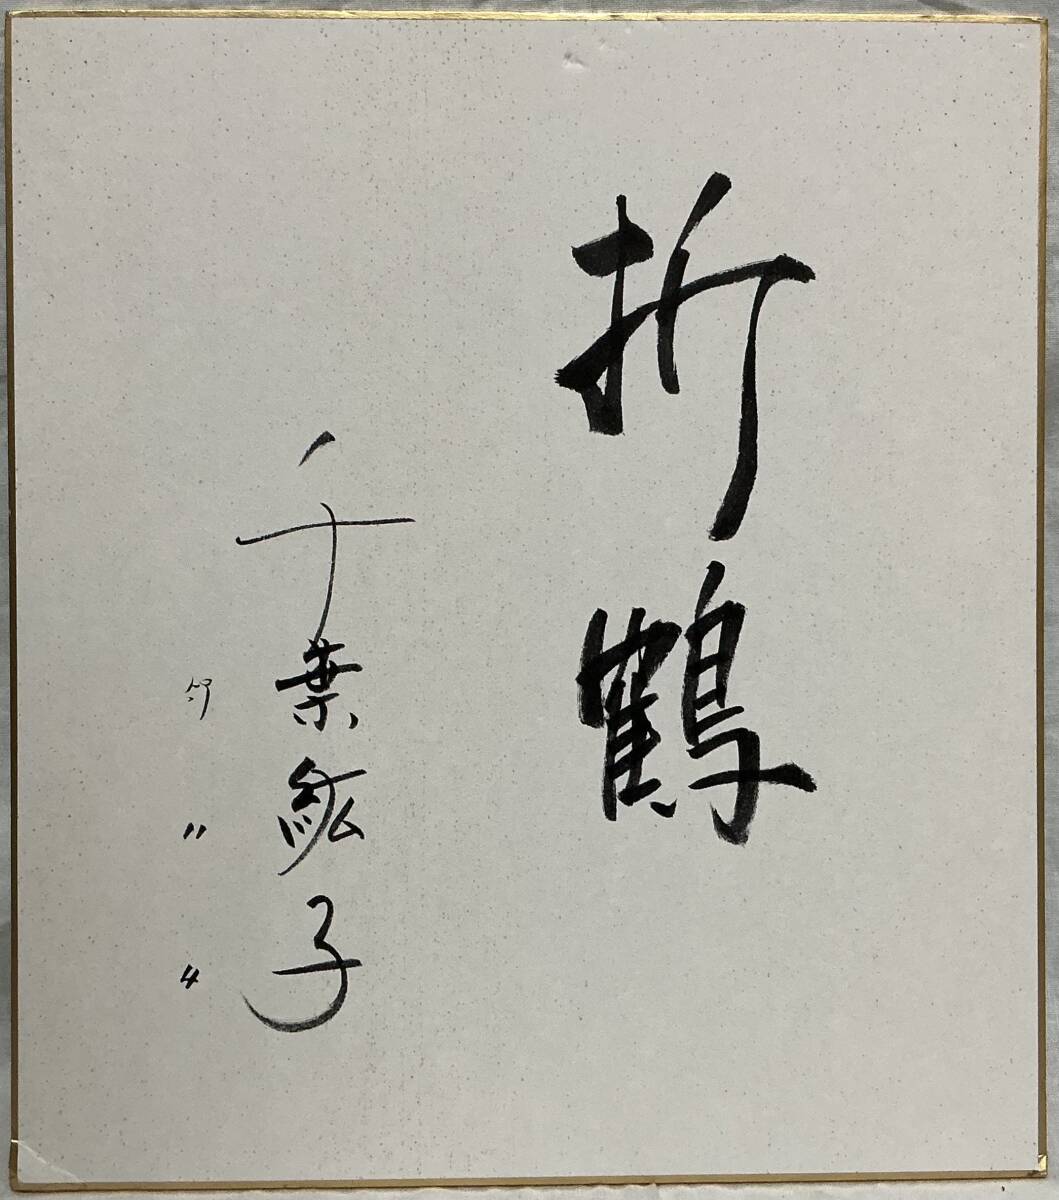 折鶴
千葉紘子
'〃 4